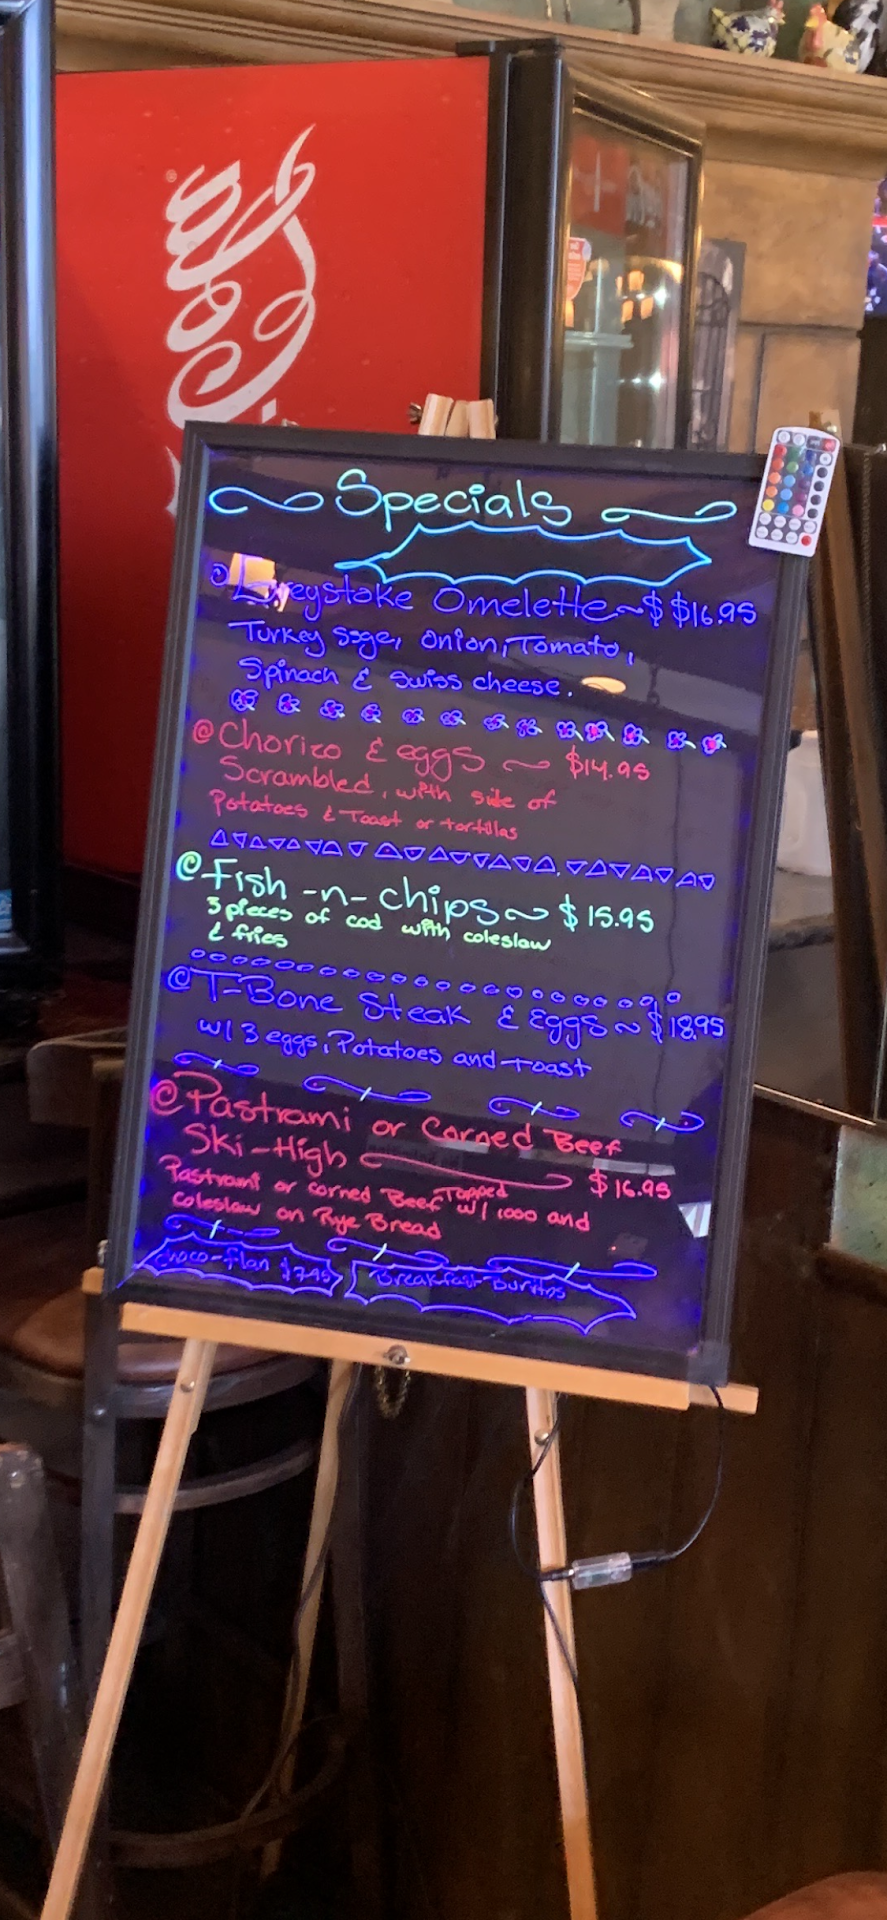 Specials
Greystoke Omelette ~ $ $16.95
Turkey ssge, onion, Tomato,
Spinach & Swiss cheese.
@ Chorizo & eggs ~ $14.95
Scrambled, with side of
Potatoes & Toast or tortillas
@ Fish -n- chips ~ $15.95
3 pieces of cod with coleslaw
& fries
@ T-Bone Steak & Eggs ~ $18.95
w/ 3 eggs, Potatoes and toast
@ Pastrami or Corned Beef
Ski-High $16.95
Pastrami or corned Beef Topped w/ 1000 and
coleslaw on Rye Bread
Choco-flan $7.95
Breakfast Burritos